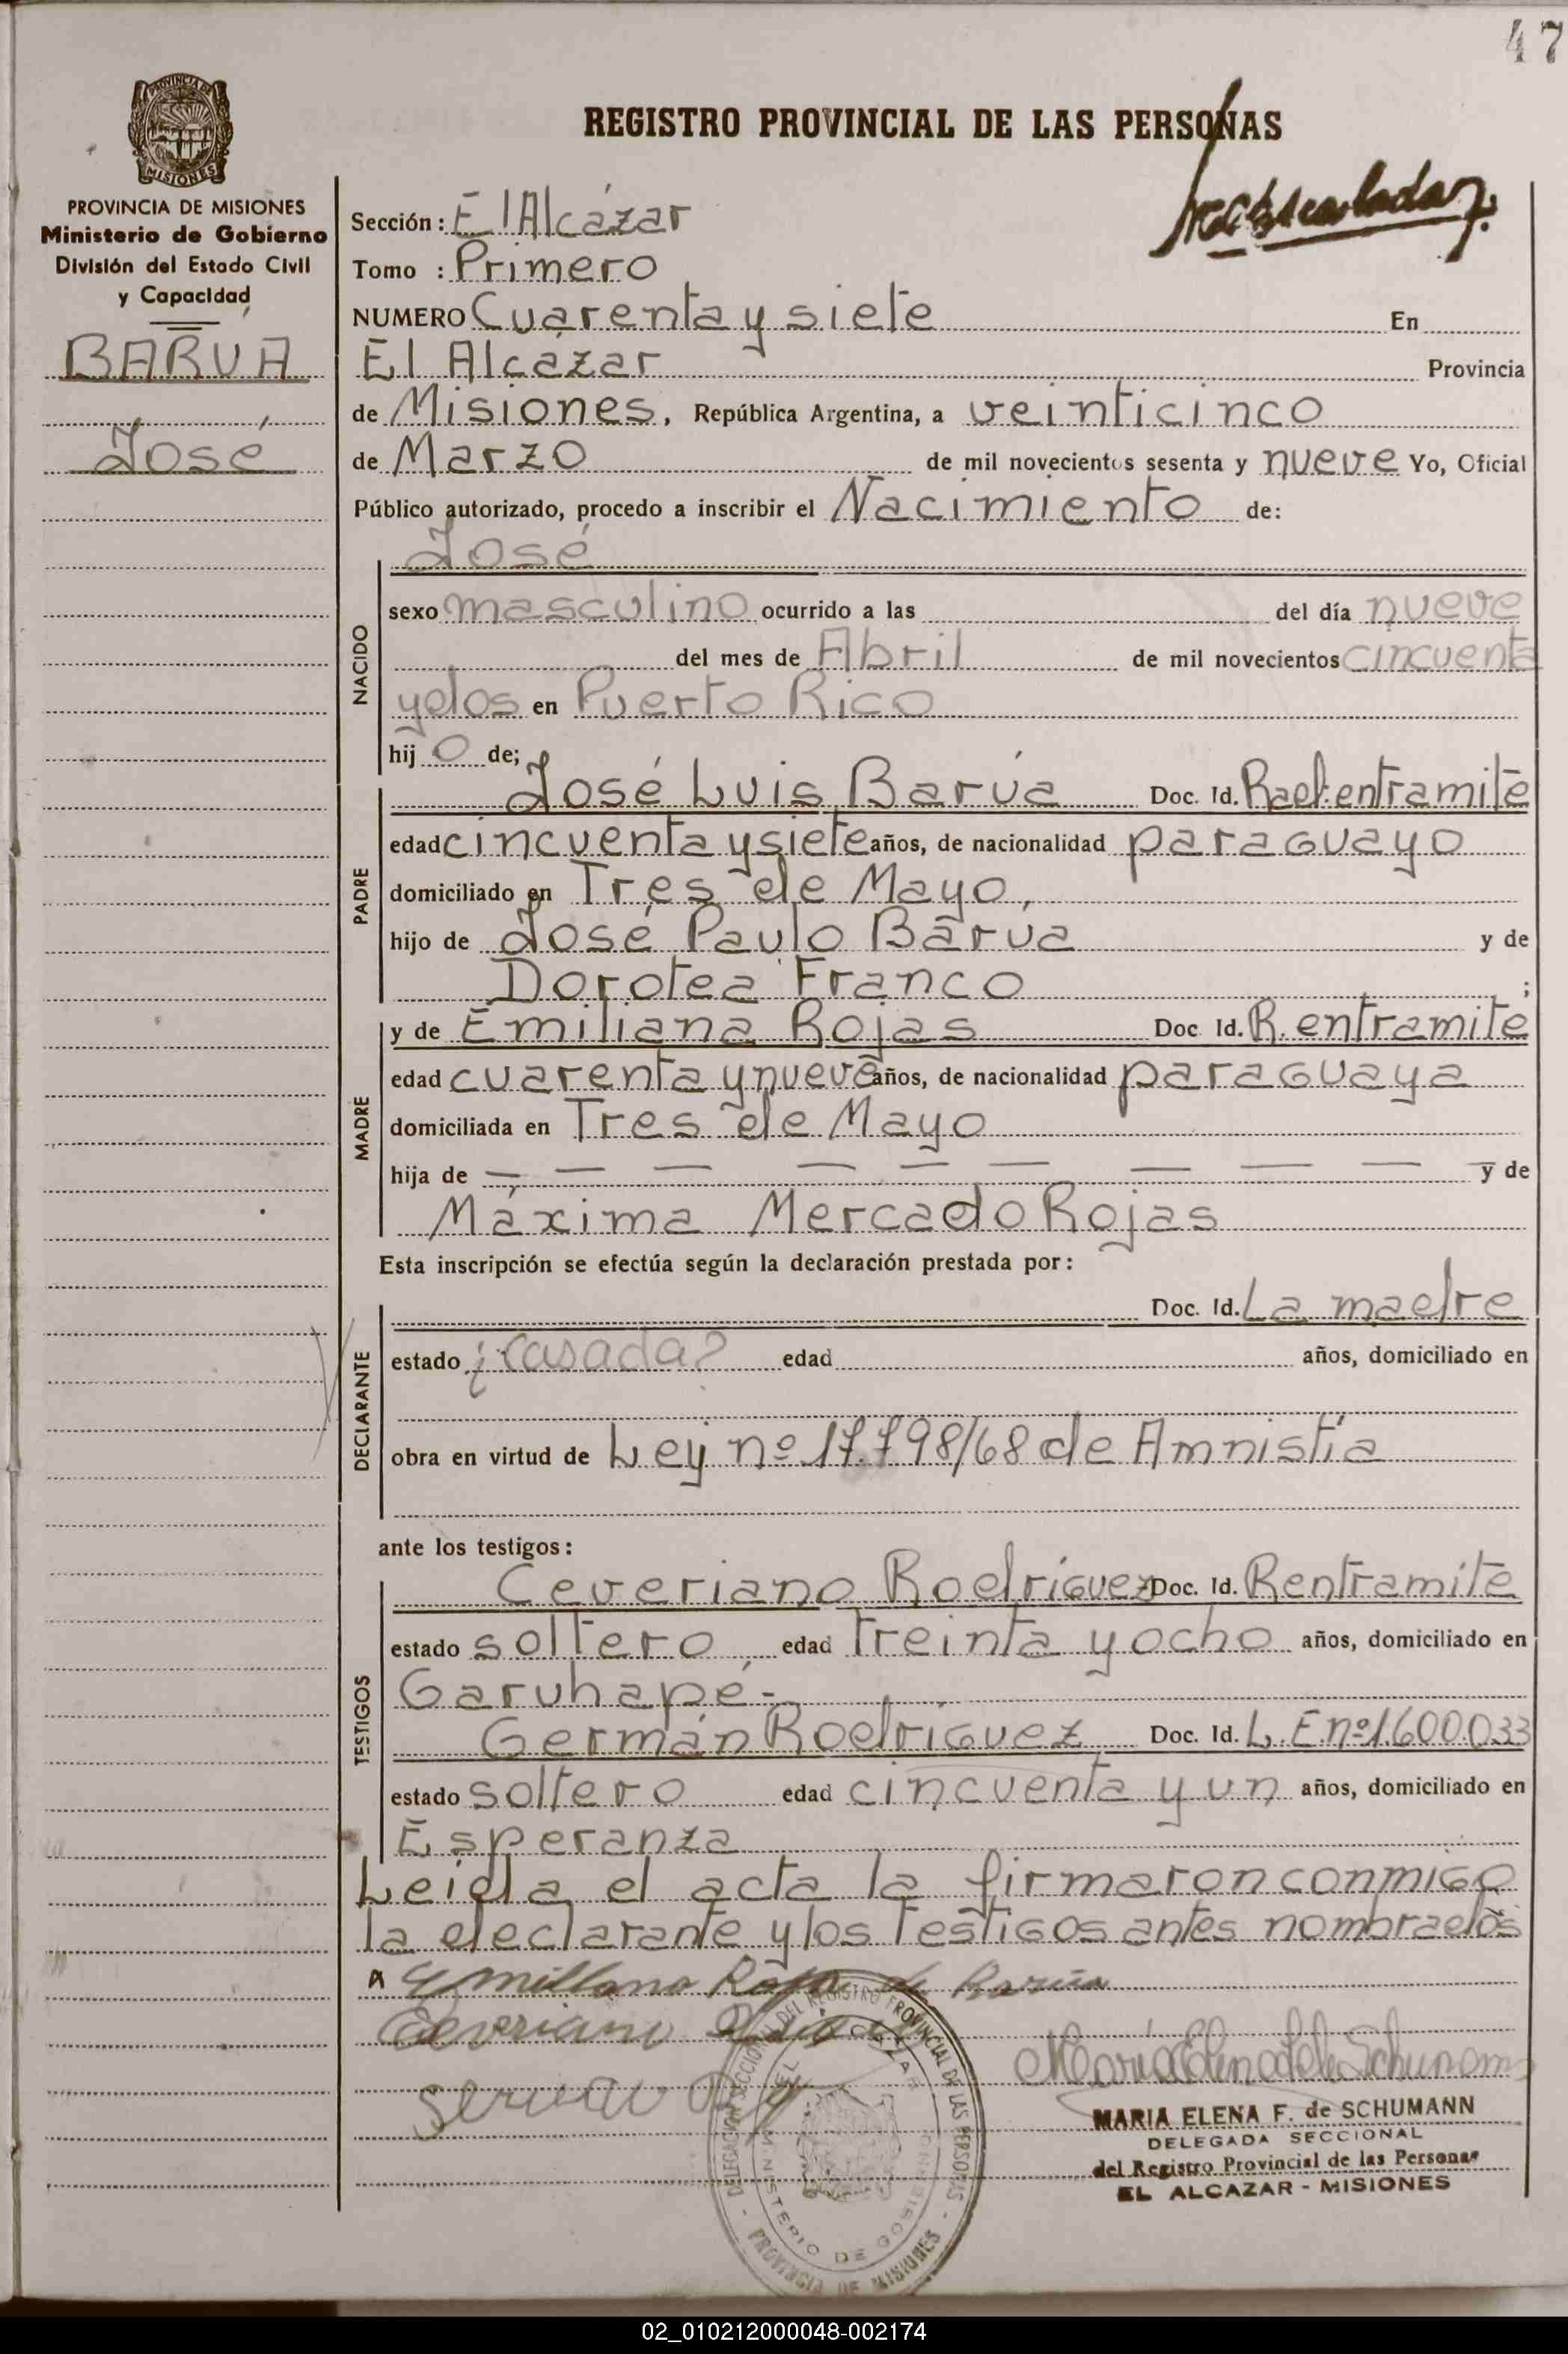 47
REGISTRO PROVINCIAL DE LAS PERSONAS
PROVINCIA DE
MISIONES
PROVINCIA DE MISIONES
Ministerio de Gobierno
División del Estado Civil
y Capacidad
BARUA
José
Sección: El Alcázar
Tomo : Primero
NUMERO Cuarenta y siete En
El Alcázar Provincia
de Misiones, República Argentina, a veinticinco
de Marzo de mil novecientos sesenta y nueve Yo, Oficial
Público autorizado, procedo a inscribir el Nacimiento de:
NACIDO
José
sexo masculino ocurrido a las del día nueve
del mes de Abril de mil novecientos cincuenta
y dos en Puerto Rico
hij o de;
PADRE
José Luis Barúa Doc. Id. Rad. en tramite
edad cincuenta y siete años, de nacionalidad paraguayo
domiciliado en Tres de Mayo,
hijo de José Paulo Barúa y de
Dorotea Franco ;
MADRE
y de Emiliana Rojas Doc. Id. R. en tramite
edad cuarenta y nueve años, de nacionalidad paraguaya
domiciliada en Tres de Mayo
hija de — — — — — — — — — y de
Máxima Mercado Rojas
Esta inscripción se efectúa según la declaración prestada por:
DECLARANTE
Doc. Id. La madre
estado ¿Casada? edad años, domiciliado en
obra en virtud de Ley nº 17.798/68 de Amnistía
ante los testigos:
TESTIGOS
Ceveriano Rodríguez Doc. Id. R en tramite
estado soltero edad treinta y ocho años, domiciliado en
Garuhapé-
Germán Rodríguez Doc. Id. L. E nº 1.600.033
estado soltero edad cincuenta y un años, domiciliado en
Esperanza
Leida el acta la firmaron conmigo
la declarante y los testigos antes nombrados
Emiliana Rojas de Barúa
MARIA ELENA F. de SCHUMANN
DELEGADA SECCIONAL
del Registro Provincial de las Personas
EL ALCAZAR - MISIONES
DELEGACION SECCIONAL DEL REGISTRO PROVINCIAL DE LAS PERSONAS
MINISTERIO DE GOBIERNO
PROVINCIA DE MISIONES
02_010212000048-002174